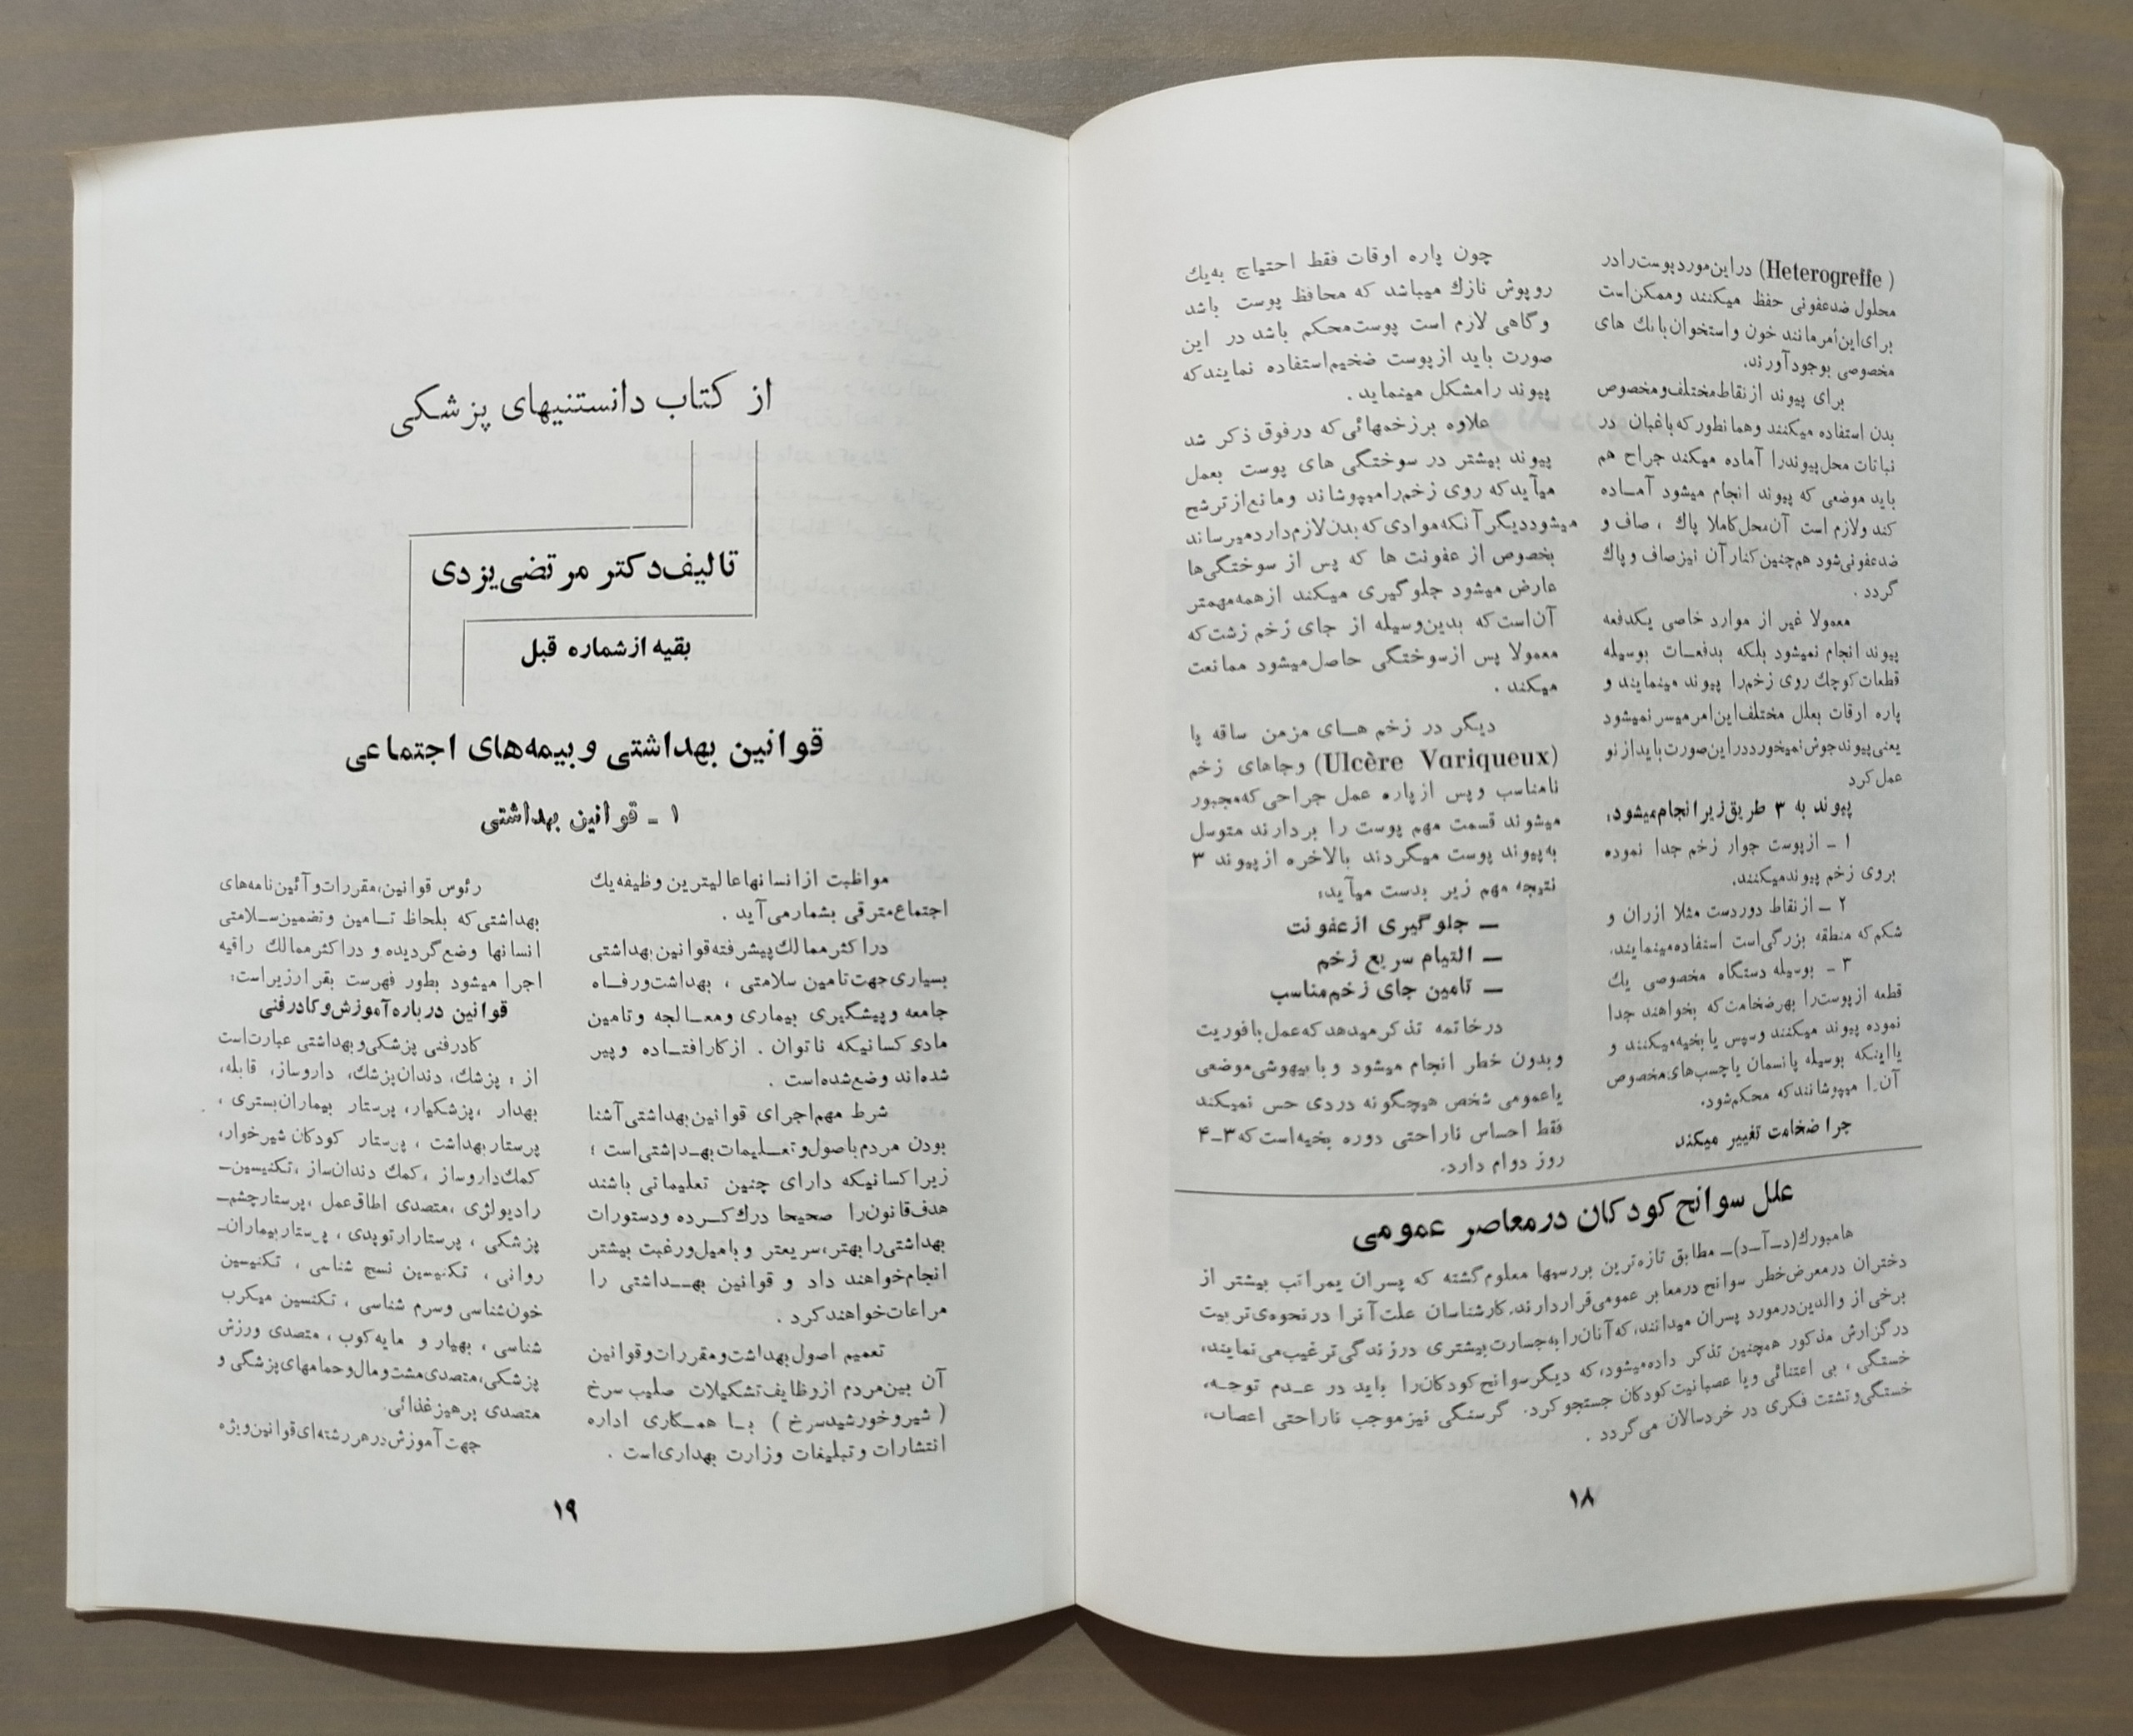 ( Heterogreffe) در این مورد پوست را در
محلول ضدعفونی حفظ میکنند وممکن است
برای این امر مانند خون و استخوان بانك های
مخصوصی بوجود آورند.
برای پیوند از نقاط مختلف و مخصوص
بدن استفاده میکنند وهمانطور که باغبان در
نباتات محل پیوند را آماده میکند جراح هم
باید موضعی که پیوند انجام میشود آمـاده
کند ولازم است آن محل کاملا پاك ، صاف و
ضدعفونی شود هم چنین کنار آن نیز صاف و پاك
گردد .
معمولا غیر از موارد خاصی یکدفعه
پیوند انجام نمیشود بلکه بدفعـات بوسیله
قطعات کوچك روی زخم را پیوند مینمایند و
پاره ارقات بعلل مختلف این امر میسر نمیشود
یعنی پیوند جوش نمیخورد در این صورت باید از نو
عمل کرد
پیوند به ۳ طریق زیر انجام میشود:
۱ ـ از پوست جوار زخم جدا نموده
بروی زخم پیوند میکنند.
۲ ـ از نقاط دور دست مثلا ازران و
شکم که منطقه بزرگی است استفاده مینمایند.
۳ ـ بوسیله دستگاه مخصوصی یك
قطعه از پوست را بهر ضخامت که بخواهند جدا
نموده پیوند میکنند وسپس یا بخیه میکنند و
یا اینکه بوسیله پانسمان یا چسب های مخصوص
آن را میپوشانند که محکم شود.
چرا ضخامت تغییر میکند
چون پاره اوقات فقط احتیاج به یك
روپوش نازك میباشد که محافظ پوست باشد
وگاهی لازم است پوست محکم باشد در این
صورت باید از پوست ضخیم استفاده نمایند که
پیوند را مشکل مینماید .
علاوه بر زخمهائی که در فوق ذکر شد
پیوند بیشتر در سوختگی های پوست بعمل
میآید که روی زخم را میپوشاند ومانع از ترشح
میشود دیگر آنکه موادی که بدن لازم دارد میرساند
بخصوص از عفونت ها که پس از سوختگی ها
عارض میشود جلوگیری میکند از همه مهمتر
آن است که بدین وسیله از جای زخم زشت که
معمولا پس از سوختگی حاصل میشود ممانعت
میکند .
دیگر در زخم هـای مزمن ساقه پا
(Ulcère Variqueux) وجاهای زخم
نامناسب وپس از پاره عمل جراحی که مجبور
میشوند قسمت مهم پوست را بردارند متوسل
به پیوند پوست میگردند بالاخره از پیوند ۳
نتیجه مهم زیر بدست میآید:
ـ جلوگیری از عفونت
ـ التیام سریع زخم
ـ تامین جای زخم مناسب
در خاتمه تذکر میدهد که عمل با فوریت
وبدون خطر انجام میشود و با بیهوشی موضعی
یا عمومی شخص هیچگونه دردی حس نمیکند
فقط احساس ناراحتی دوره بخیه است که ۳ـ۴
روز دوام دارد.
علل سوانح کودکان در معاصر عمومی
هامبورك(د-آ-د)ـ مطابق تازه ترین بررسیها معلوم گشته که پسران بمراتب بیشتر از
دختران در معرض خطر سوانح در معابر عمومی قرار دارند. کارشناسان علت آنرا در نحوه ی تربیت
برخی از والدین در مورد پسران میدانند، که آنان را به جسارت بیشتری در زندگی ترغیب می نمایند،
در گزارش مذکور همچنین تذکر داده میشود، که دیگر سوانح کودکان را باید در عـدم توجـه،
خستگی ، بی اعتنائی ویا عصبانیت کودکان جستجو کرد. گرسنگی نیز موجب ناراحتی اعصاب،
خستگی و تشتت فکری در خردسالان می گردد .
۱۸
از کتاب دانستنیهای پزشکی
تالیف دکتر مرتضی یزدی
بقیه از شماره قبل
قوانین بهداشتی و بیمه های اجتماعی
۱ ـ قوانین بهداشتی
مواظبت از انسانها عالیترین وظیفه یك
اجتماع مترقی بشمار می آید .
در اکثر ممالك پیشرفته قوانین بهداشتی
بسیاری جهت تامین سلامتی ، بهداشت و رفـاه
جامعه و پیشگیری بیماری ومعـالجه وتامین
مادی کسانیکه ناتوان . از کار افتـاده وپیر
شده اند وضع شده است .
شرط مهم اجرای قوانین بهداشتی آشنا
بودن مردم با صول و تعـلیمات بهـداشتی است ؛
زیرا کسانیکه دارای چنین تعلیماتی باشند
هدف قانون را صحیحا درك کـرده ودستورات
بهداشتی را بهتر، سریعتر و با میل و رغبت بیشتر
انجام خواهند داد و قوانین بهـداشتی را
مراعات خواهند کرد .
تعمیم اصول بهداشت و مقررات و قوانین
آن بین مردم از وظایف تشکیلات صلیب سرخ
( شیر و خورشید سرخ ) بـا همـکاری اداره
انتشارات و تبلیغات وزارت بهداری است .
رئوس قوانین، مقررات و آئین نامه های
بهداشتی که بلحاظ تـامین و تضمین سـلامتی
انسانها وضع گردیده و در اکثر ممالك راقیه
اجرا میشود بطور فهرست بقرار زیر است:
قوانین درباره آموزش و کادر فنی
کادر فنی پزشکی و بهداشتی عبارت است
از : پزشك، دندان پزشك، داروساز، قابله،
بهدار ، پزشکیار، پرستار بیماران بستری ،
پرستار بهداشت ، پرستار کودکان شیرخوار،
کمك داروساز ، کمك دندان ساز ، تکنیسین ـ
رادیولژی ، متصدی اطاق عمل ، پرستار چشم ـ
پزشکی ، پرستار ارتوپدی ، پرستار بیماران ـ
روانی ، تکنیسین نسج شناسی ، تکنیسین
خون شناسی وسرم شناسی ، تکنسین میکرب
شناسی ، بهیار و مایه کوب ، متصدی ورزش
پزشکی، متصدی مشت و مال و حمامهای پزشکی و
متصدی پرهیز غذائی.
جهت آموزش در هر رشته ای قوانین ویژه
۱۹